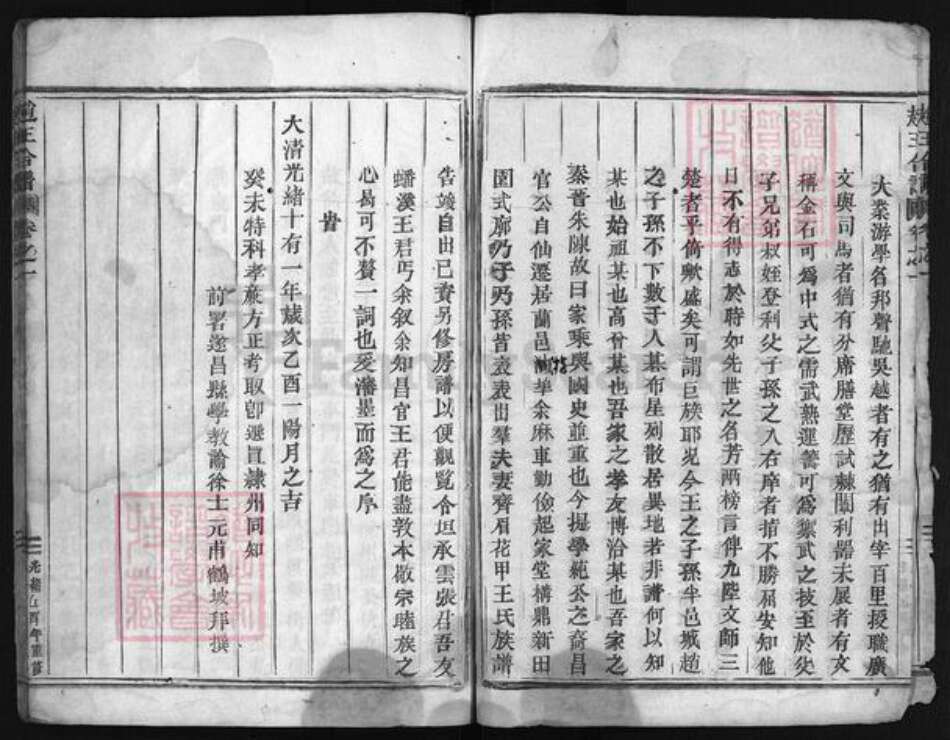 大業游學名邦聲馳吳越者有之猶有出宰百里授職廣
文與司馬者猶有分席膳堂歷試棘闈利器未展者有文
稱金石可爲中式之儒武熟運籌可爲禦武之技至於父
子兄弟叔姪登科父子孫之入右庠者指不勝屈安知他
日不有得志於時如先世之名芳兩榜言俾九陞文師三
楚者乎猗歟盛矣可謂巨族耶況今王之子孫半邑城趙
之子孫不下數千人棊布星列散居異地若非譜何以知
某也始祖某也高曾某也吾家之孝友博洽某也吾家之
秦晉朱陳故曰家乘與國史並重也今提學純公之裔昌
官公自仙遷居蘭邑 埠余麻車勤儉起家堂構鼎新田
園式廓乃子乃孫皆表表出羣夫妻齊眉花甲王氏族譜
告竣自出已資另修房譜以便觀覽令坦承雲張君吾友
蟠溪王君丐余叙余知昌官王君能盡敦本敬宗睦族之
心曷可不贅一詞也爰濡墨而爲之序
旹
大清光緒十有一年歲次乙酉一陽月之吉
癸未特科孝廉方正考取卽選直隸州同知
前署遂昌縣學教諭徐士元甫鶴坡拜撰
趙王合譜 卷之一
光緒乙酉年重修